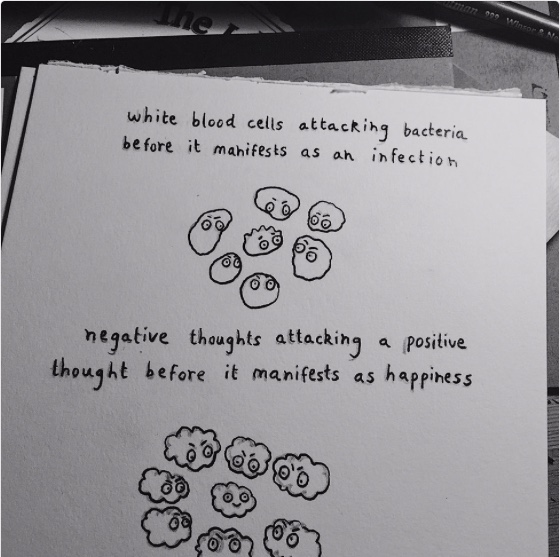 The
white blood cells attacking bacteria
before it manifests as an infection
negative thoughts attacking a positive
thought before it manifests as happiness